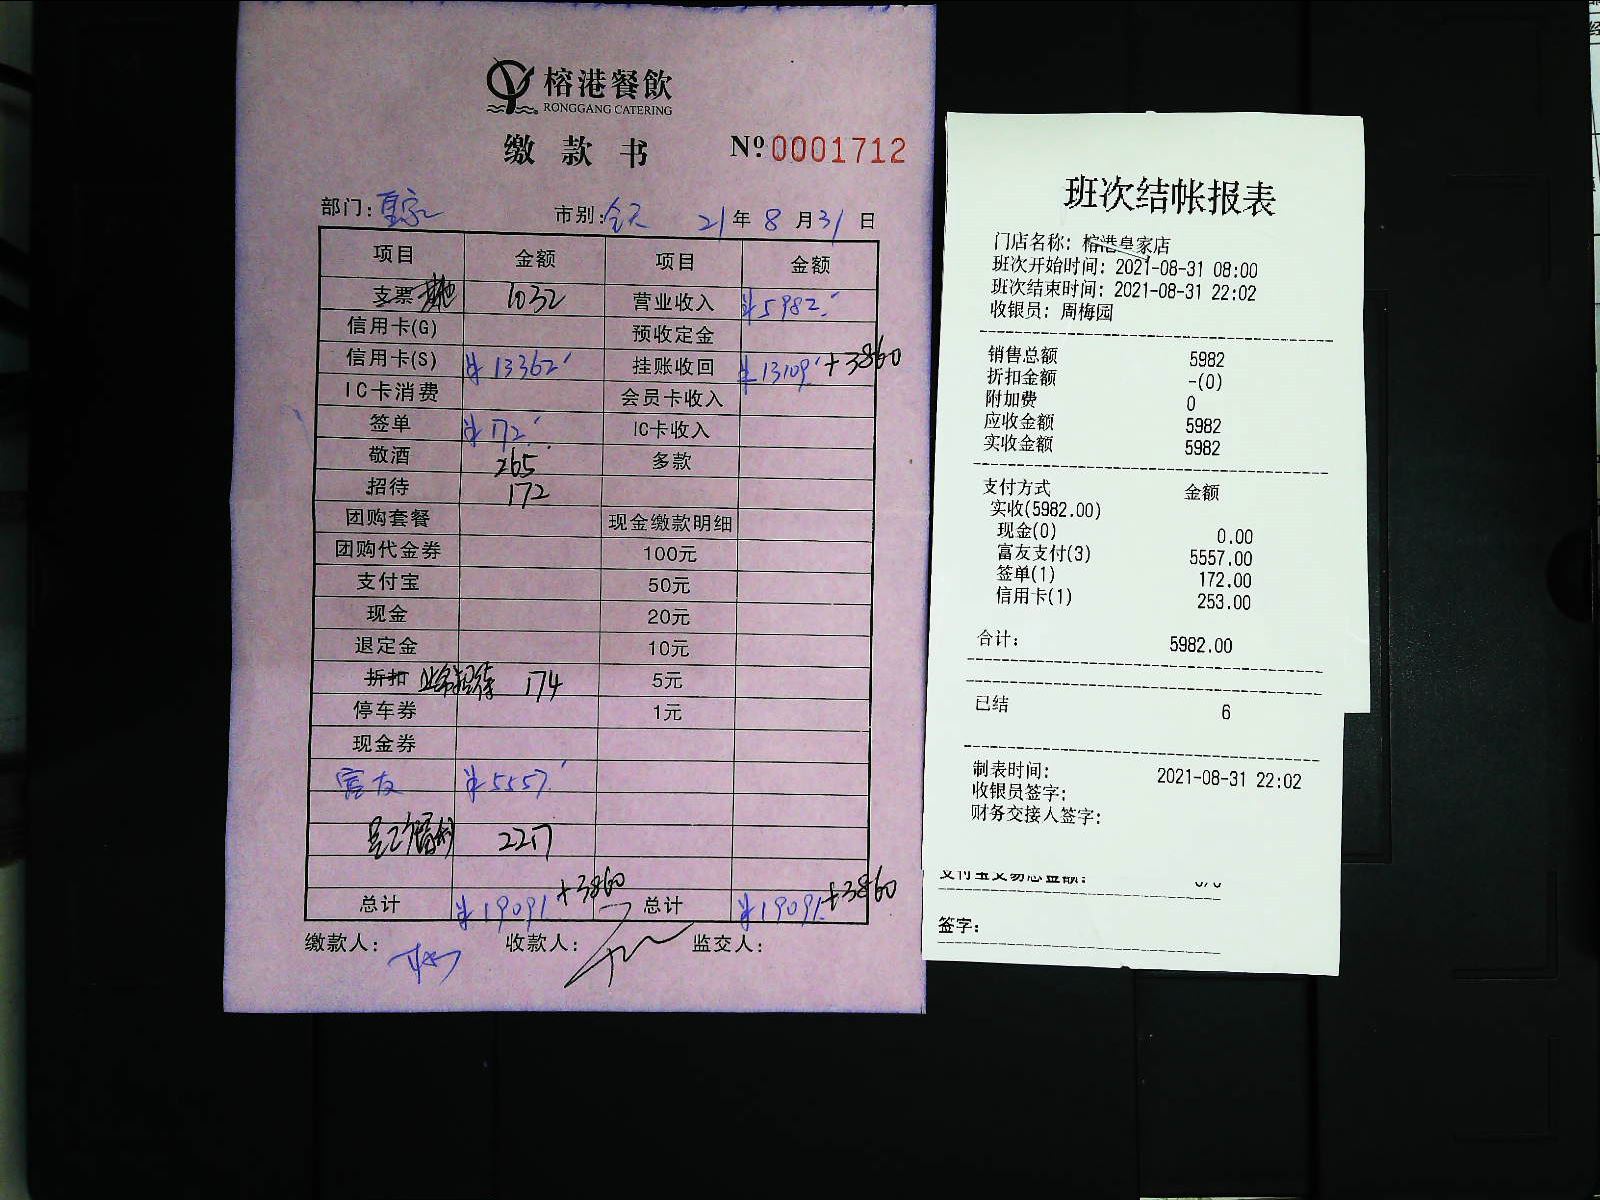 榕港餐飲
RONGGANG CATERING
缴款书 Nº 0001712
部门：皇家 市别：全天 21年8月31日
项目 金额 项目 金额
支票 其他 1032 营业收入 ¥5982
信用卡(G) 预收定金
信用卡(S) ¥13362 挂账收回 ¥13109 +3860
IC卡消费 会员卡收入
签单 ¥172 IC卡收入
敬酒 265 多款
招待 172
团购套餐 现金缴款明细
团购代金券 100元
支付宝 50元
现金 20元
退定金 10元
折扣 招待 174 5元
停车券 1元
现金券
富友 ¥5557
员工福利 2217
总计 ¥19091 +3860 总计 ¥19091 +3860
缴款人： 收款人： 监交人：
班次结帐报表
门店名称：榕港皇家店
班次开始时间：2021-08-31 08:00
班次结束时间：2021-08-31 22:02
收银员：周梅园
销售总额 5982
折扣金额 -(0)
附加费 0
应收金额 5982
实收金额 5982
支付方式 金额
实收(5982.00)
现金(0) 0.00
富友支付(3) 5557.00
签单(1) 172.00
信用卡(1) 253.00
合计： 5982.00
已结 6
制表时间： 2021-08-31 22:02
收银员签字：
财务交接人签字：
支付宝交易总金额：
签字：